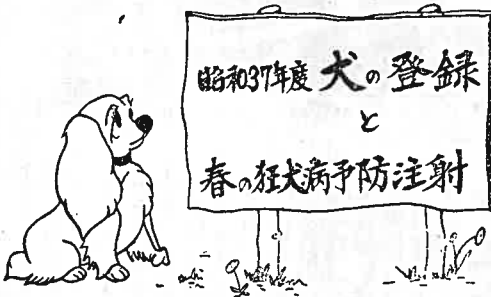 昭和37年度 犬の登録
と
春の狂犬病予防注射